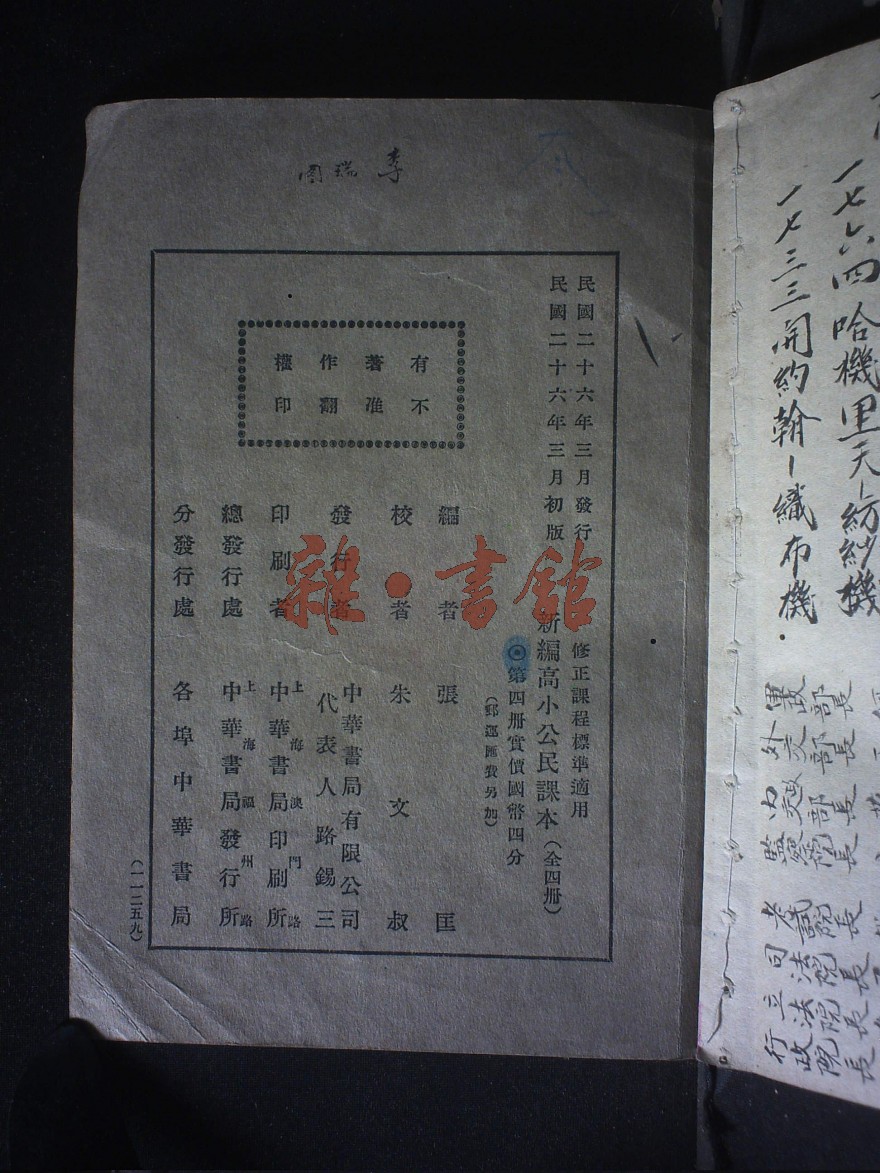 李瑞
民國二十六年三月發行
民國二十六年三月初版
修正課程標準適用
新編高小公民課本（全四冊）
◎第四冊實價國幣四分
（郵運匯費另加）
有不
著准
作翻
權印
編者 張匡
校者 朱文叔
發行者 中華書局有限公司
代表人路錫三
印刷者 上海澳門路
中華書局印刷所
總發行處 上海福州路
中華書局發行所
分發行處 各埠中華書局
（一一二五九）
雜·書館
一七六四哈機里天—紡紗機
一七三三開約翰—織布機
部長
外交部長
內政部長
監察院長
考試院長
司法院長
立法院長
行政院長